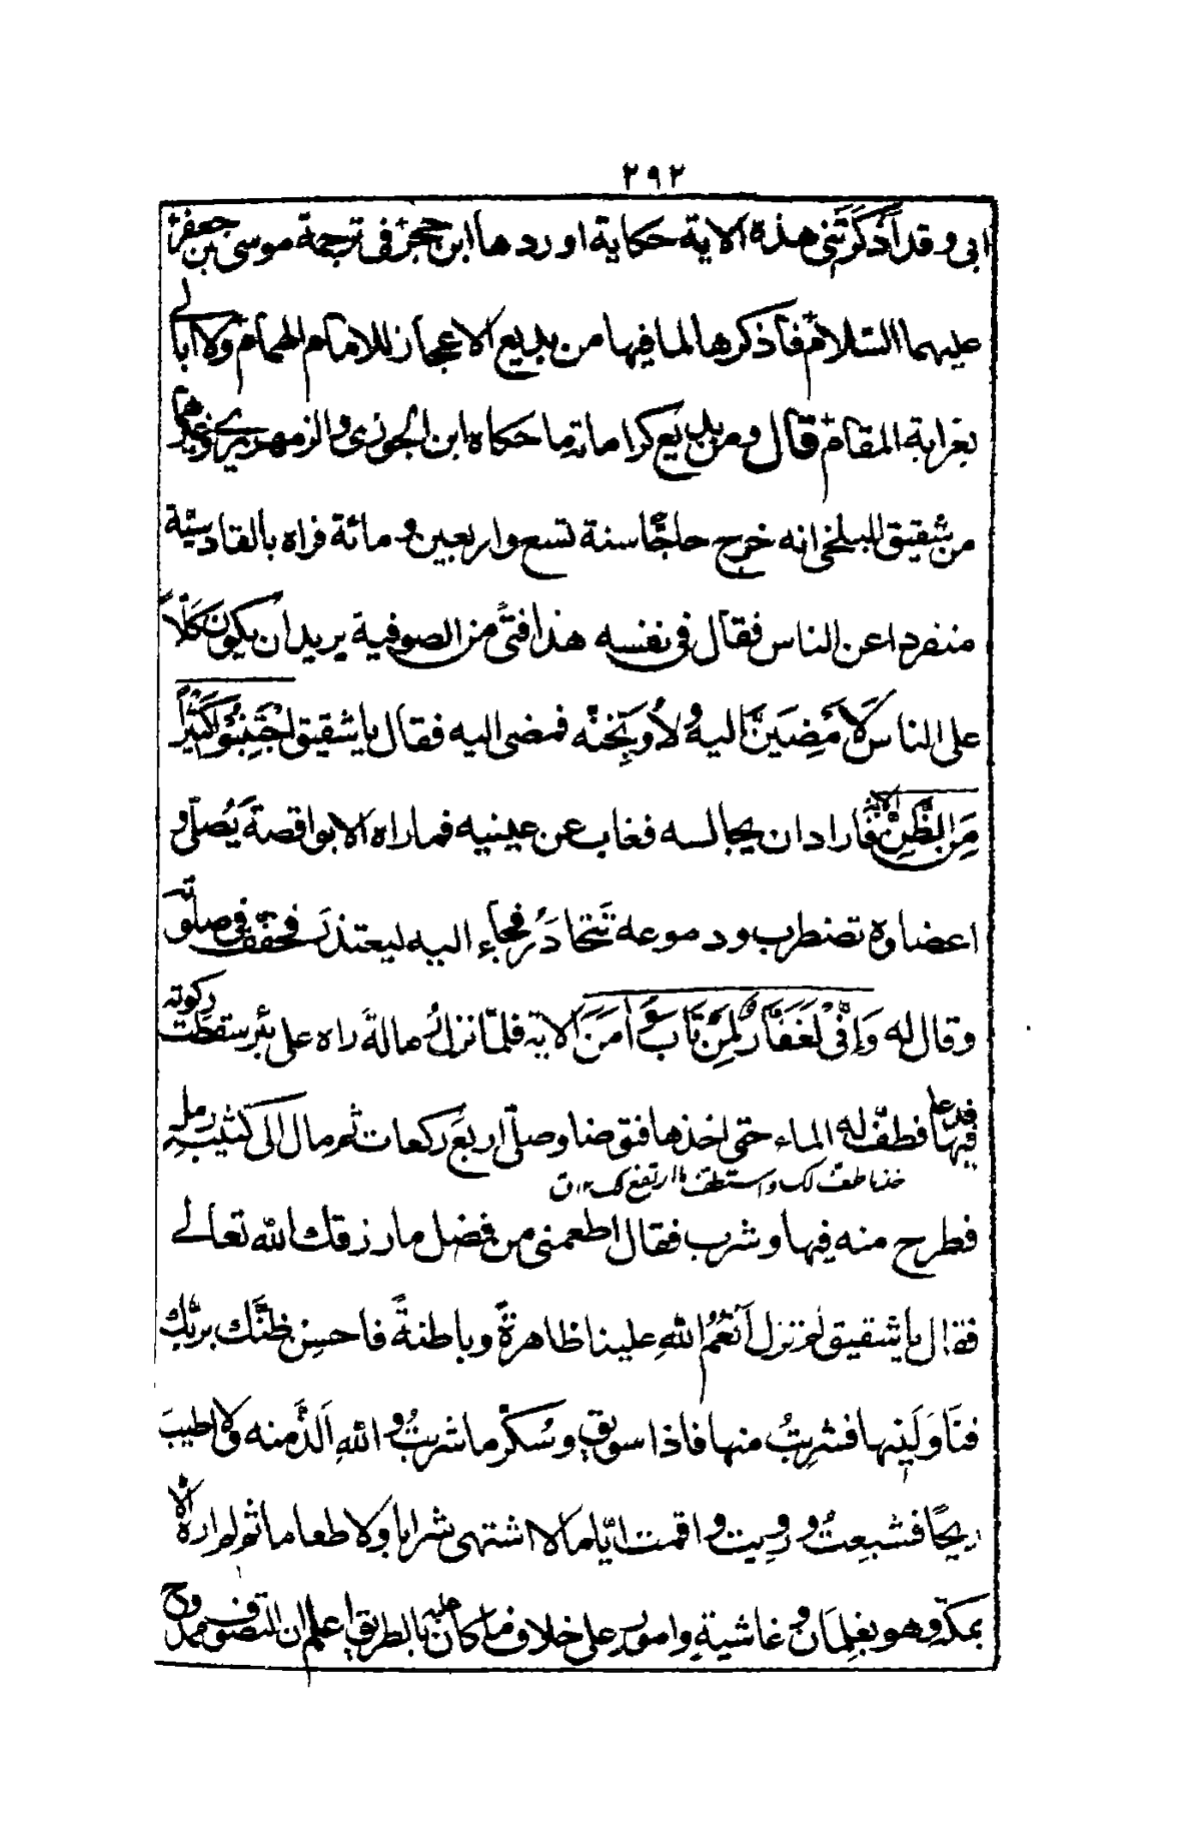 ٢٩٢
ابى وقد أذْكَرَتَنى هذه الاية حكاية اوردها ابن حجر فى ترجمة موسى بن جعفر
عليهما السّلام فأذكرها لما فيها من بديع الاعجاز للامام الهمام ولا ابالى
بغرابة المقام قال ومن بديع كراماته ما حكاه ابن الجوزى والزمهريرى وغيرهما
من شقيق البلخى انه خرج حاجًّا سنة تسع واربعين ومائة فراه بالقادسيّة
منفردا عن الناس فقال فى نفسه هذا فتًى من الصوفية يريد ان يكون كَلّاً
على الناس لَاَمْضِيَنَّ اليه ولأُوَبِّخنّه فمضى اليه فقال يا شقيق اجْتَنِبُوْا كَثِيْرًا
مِّنَ الظَّنِّ الآية فاراد ان يجالسه فغاب عن عينيه فما راه الا بواقصة يُصلّى و
اعضاؤه تضطرب ودموعه تَتَحَادَرُ فجاء اليه ليعتذرَ فخفّف فى صلوته
وقال له وَاِنِّىْ لَغَفَّارٌ لِّمَنْ تَابَ وَاٰمَنَ الاية فلمّا نزل زُمالة راه على بئر سقطت ركوته
فيها فدعا فطفّ له الماء حتى اخذها فتوضا وصلّى اربعَ ركعات ثم مال الى كثيب رمل
خذ ما طفّ لك واستطفّ ما ارتفع لك ١٢ ق
فطرح منه فيها وشرب فقال اطعمنى من فضل ما رزقك الله تعالے
فقال يا شقيق لم تزل اَنْعُمُ اللهِ علينا ظاهرةً وباطنةً فاحسِن ظنَّك بربِّك
فنَاوَلَنِيها فشرِبتُ منها فاذا سويق وسُكّر ما شربتُ واللهِ اَلَذَّ منه ولا اطيبَ
ريحًا فشبِعتُ ورويت واقمت ايّاما لا اشتهى شرابا ولا طعاما ثم لم اره الا
بمكّة وهو بغِلمَان وغاشيةٍ وامورٍ على خلاف ما كان عليه بالطريق اعلم ان التصوّف ممدوح